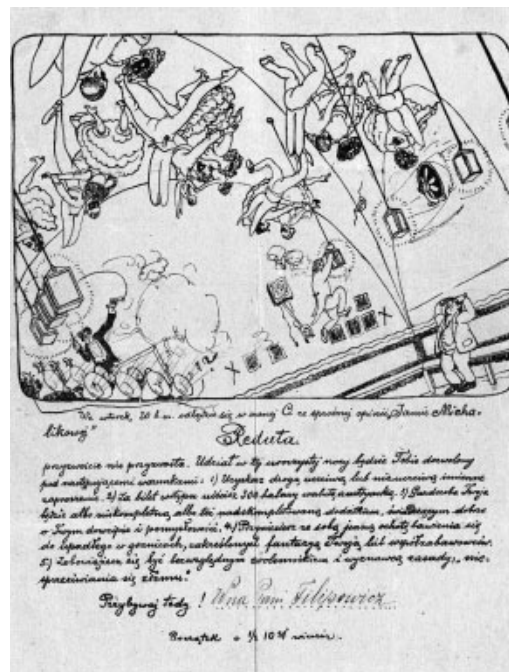 We wtorek 20 b.m. odbędzie się w znanej C. ze sprośnej opinii „Jamie Micha-
likowej"
Reduta
przyzwoicie nie przyzwoita. Udział w tej uroczystej nocy będzie Tobie dozwolony
pod następującymi warunkami: 1) Uzyskasz drogą uczciwą lub nieuczciwą imienne
zaproszenie. 2) Za bilet wstępu uiścisz 300 halerzy walutą austryacką. 3) Garderoba Twoja
będzie albo niekompletna, albo też nadkompletowana dodatkiem, świadczącym dobrze
o Twym dowcipie i pomysłowości. 4) Przyniesiesz ze sobą jasną ochotę bawienia się
do upadłego w granicach, zakreślonych fantazyą Twoją lub współzabawowców.
5) Zobowiążesz się być bezwzględnym zwolennikiem i wyznawcą zasady: „nie-
sprzeciwiania się złemu".
Przybywaj tedy! Wna Pani Filipowicz
Początek o ½ 10 tej wieczór.